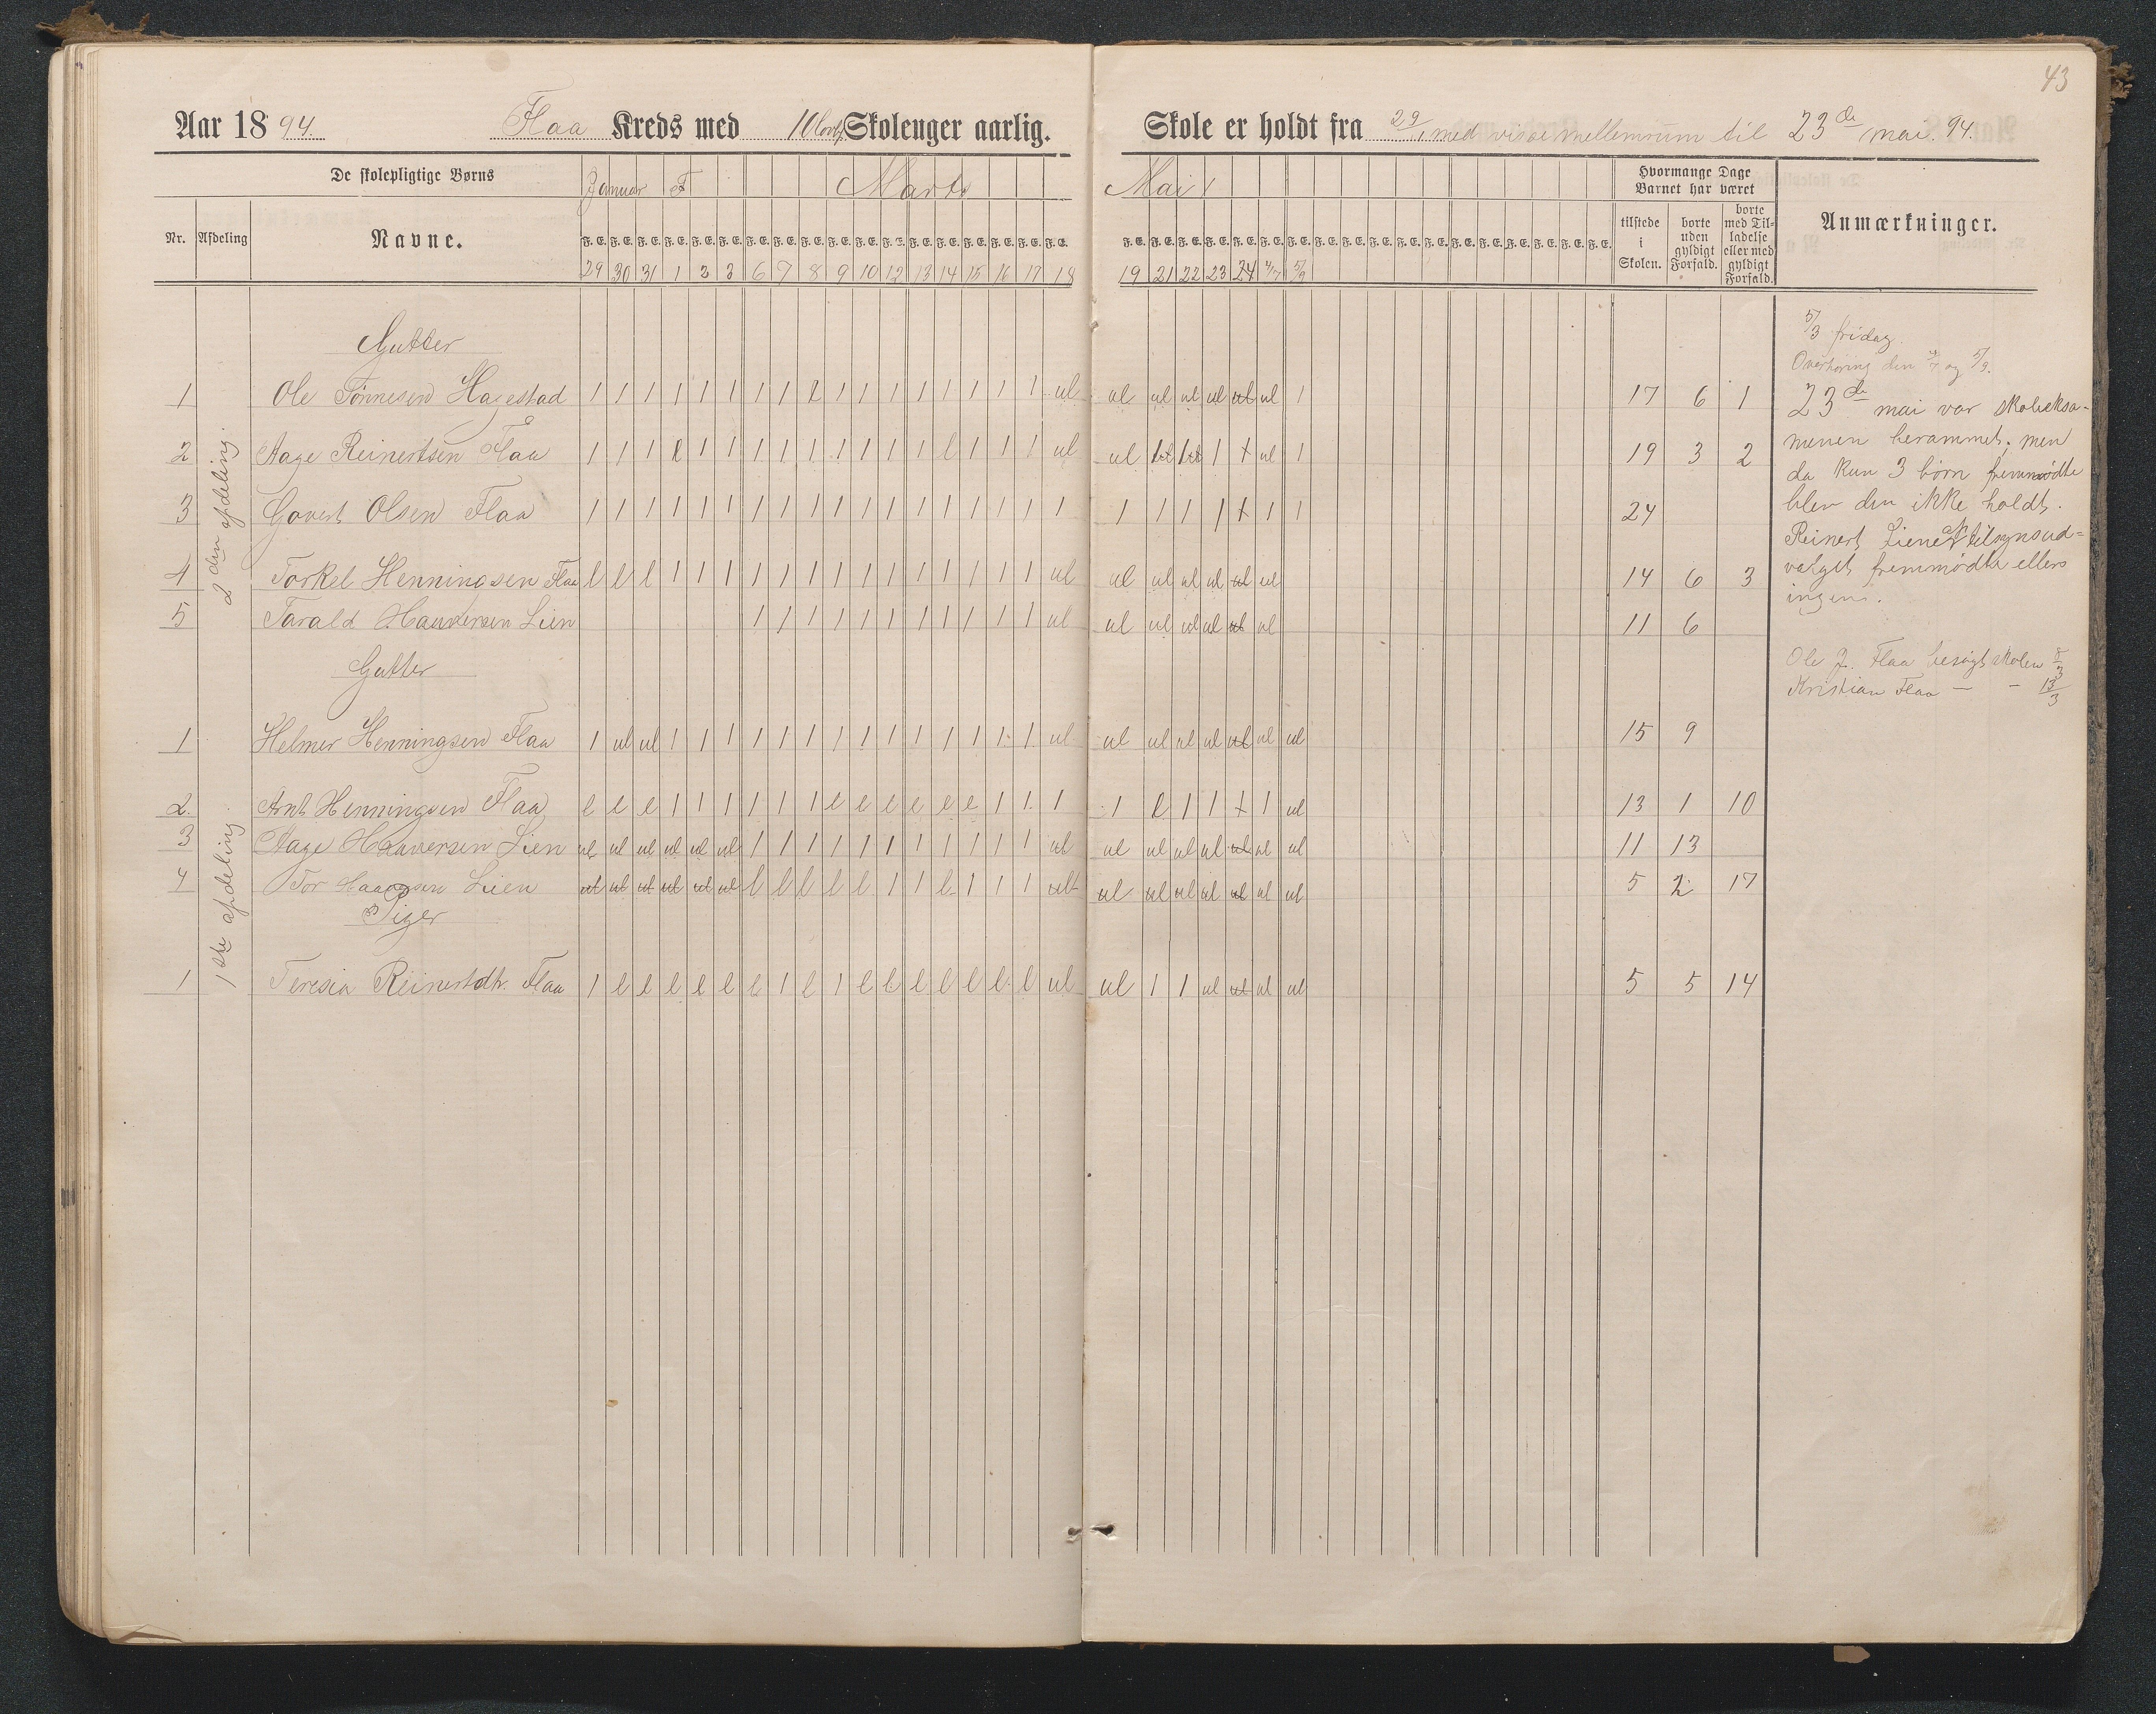 43
Aar 18 94. Flaa Kreds med 10 Skoleuger aarlig.
Skole er holdt fra 29/1 med visse mellemrum til 23de mai 94.
De skolepligtige Børns
Januar F Marts
Mai
Hvormange Dage Barnet har været
Nr. Afdeling Navne.
F.E. F.E. F.E. F.E. F.E. F.E. F.E. F.E. F.E. F.E. F.E. F.E. F.E. F.E. F.E. F.E. F.E. F.E.
F.E. F.E. F.E. F.E. F.E. F.E. F.E. F.E. F.E. F.E. F.E. F.E. F.E. F.E. F.E. F.E. F.E. F.E.
tilstede i Skolen.
borte uden gyldigt Forfald.
borte med Tilladelse eller med gyldigt Forfald.
Anmærkninger.
29 30 31 1 2 3 6 7 8 9 10 12 13 14 15 16 17 18
19 21 22 23 24 4/7 5/9
Gutter
2den afdeling.
1 Ole Tønnesen Hagestad 1 1 1 1 1 1 1 1 l 1 1 1 1 1 1 1 1 ul ul ul ul ul ul ul 1 17 6 1
2 Aage Reinertsen Flaa 1 1 1 l 1 1 1 1 1 1 1 1 1 l 1 1 1 ul ul 1 1 1 + ul 1 19 3 2
3 Govert Olsen Flaa 1 1 1 1 1 1 1 1 1 1 1 1 1 1 1 1 1 1 1 1 1 1 + 1 1 24
4 Torkel Henningsen Flaa l l l 1 1 1 1 1 1 1 1 1 1 1 1 1 1 ul ul ul ul ul ul ul 14 6 3
5 Tarald Hauversen Lien 1 1 1 1 1 1 1 1 1 1 1 ul ul ul ul ul ul ul 11 6
Gutter
1ste afdeling
1 Helmer Henningsen Flaa 1 ul ul 1 1 1 1 1 1 1 1 1 1 1 1 1 1 ul ul ul ul ul ul ul ul 15 9
2. Arnt Henningsen Flaa l l l 1 1 1 1 1 1 l l l l l l 1 1 1 1 l 1 1 + 1 ul 13 1 10
3 Aage Hauversen Lien ul ul ul ul ul ul 1 1 1 1 1 1 1 1 1 1 1 ul ul ul ul ul ul ul ul 11 13
4 Tor Lien ul ul ul ul ul ul l l l l l 1 1 l 1 1 1 ul ul ul ul ul ul ul ul 5 2 17
Piger
1 Teresia Reinertsdtr. Flaa 1 l l l l l l 1 l 1 l l l l l l l ul ul 1 1 ul ul ul ul 5 5 14
5/3 fridag.
Overhøring den 4/7 og 5/9.
23de mai var skoleeksa-
menen berammet; men
da kun 3 børn fremmødte
blev den ikke holdt.
Reinert Liene af tilsynsud=
valget fremmødte ellers
ingen.
Ole J. Flaa besøgt skolen 8/3
Kristian Flaa — — 13/3